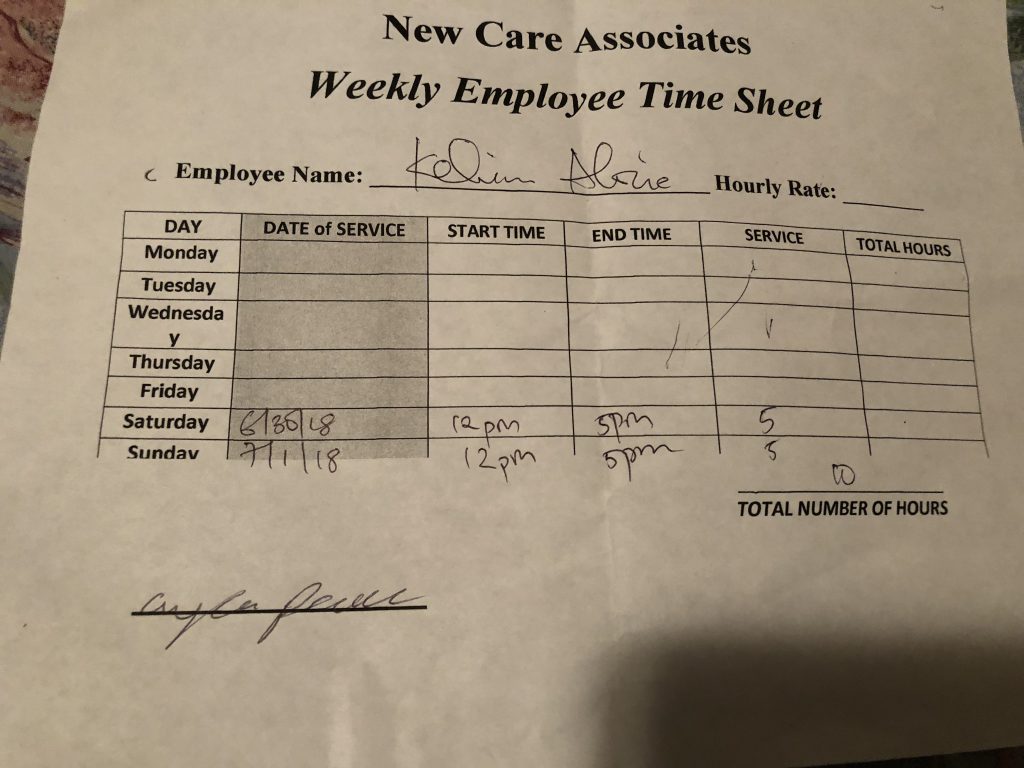 New Care Associates
Weekly Employee Time Sheet
Employee Name: Hourly Rate:
DAY DATE of SERVICE START TIME END TIME SERVICE TOTAL HOURS
Monday
Tuesday
Wednesda
y
Thursday
Friday
Saturday 6/30/18 12pm 5pm 5
Sunday 7/1/18 12pm 5pm 5
10
TOTAL NUMBER OF HOURS